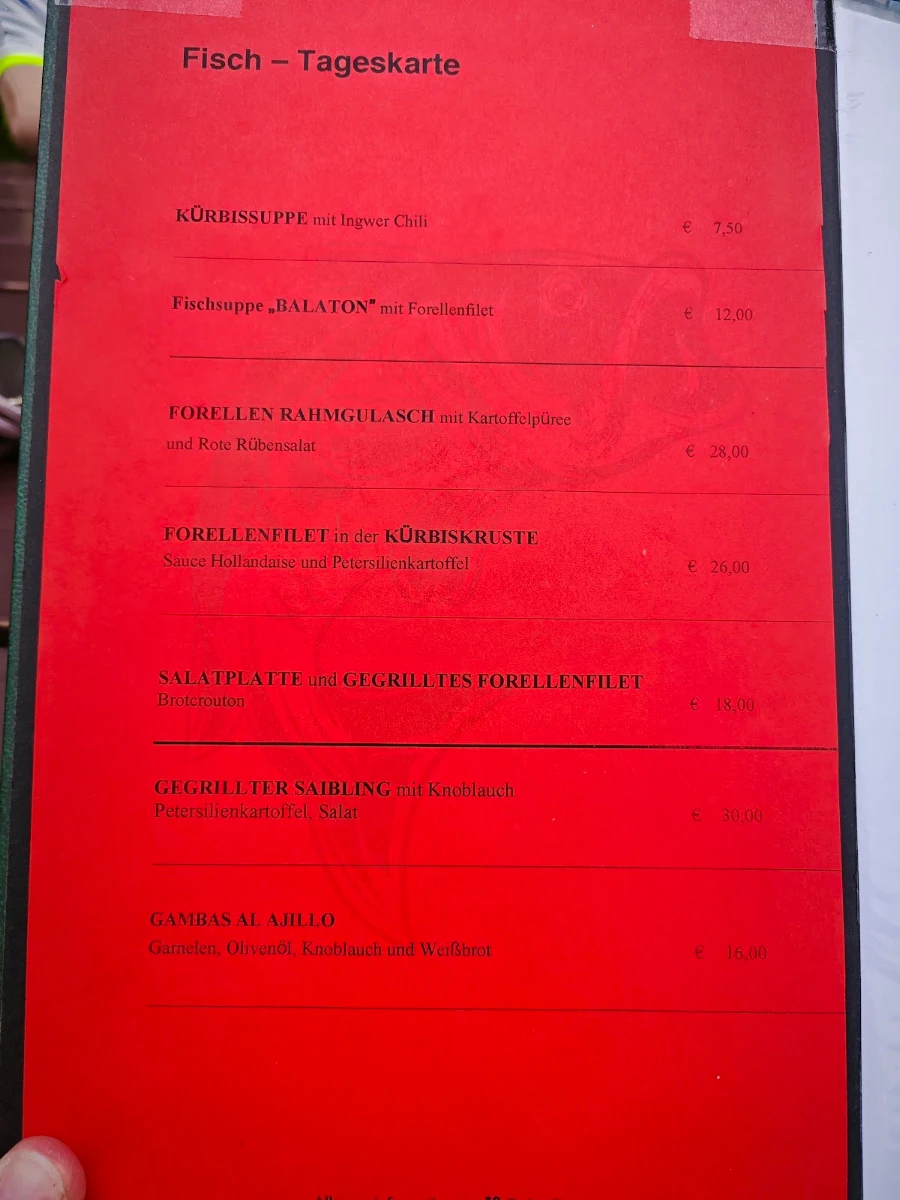 Fisch – Tageskarte
KÜRBISSUPPE mit Ingwer Chili € 7,50
Fischsuppe „BALATON" mit Forellenfilet € 12,00
FORELLEN RAHMGULASCH mit Kartoffelpüree
und Rote Rübensalat € 28,00
FORELLENFILET in der KÜRBISKRUSTE
Sauce Hollandaise und Petersilienkartoffel € 26,00
SALATPLATTE und GEGRILLTES FORELLENFILET
Brotcrouton € 18,00
GEGRILLTER SAIBLING mit Knoblauch
Petersilienkartoffel, Salat € 30,00
GAMBAS AL AJILLO
Garnelen, Olivenöl, Knoblauch und Weißbrot € 16,00